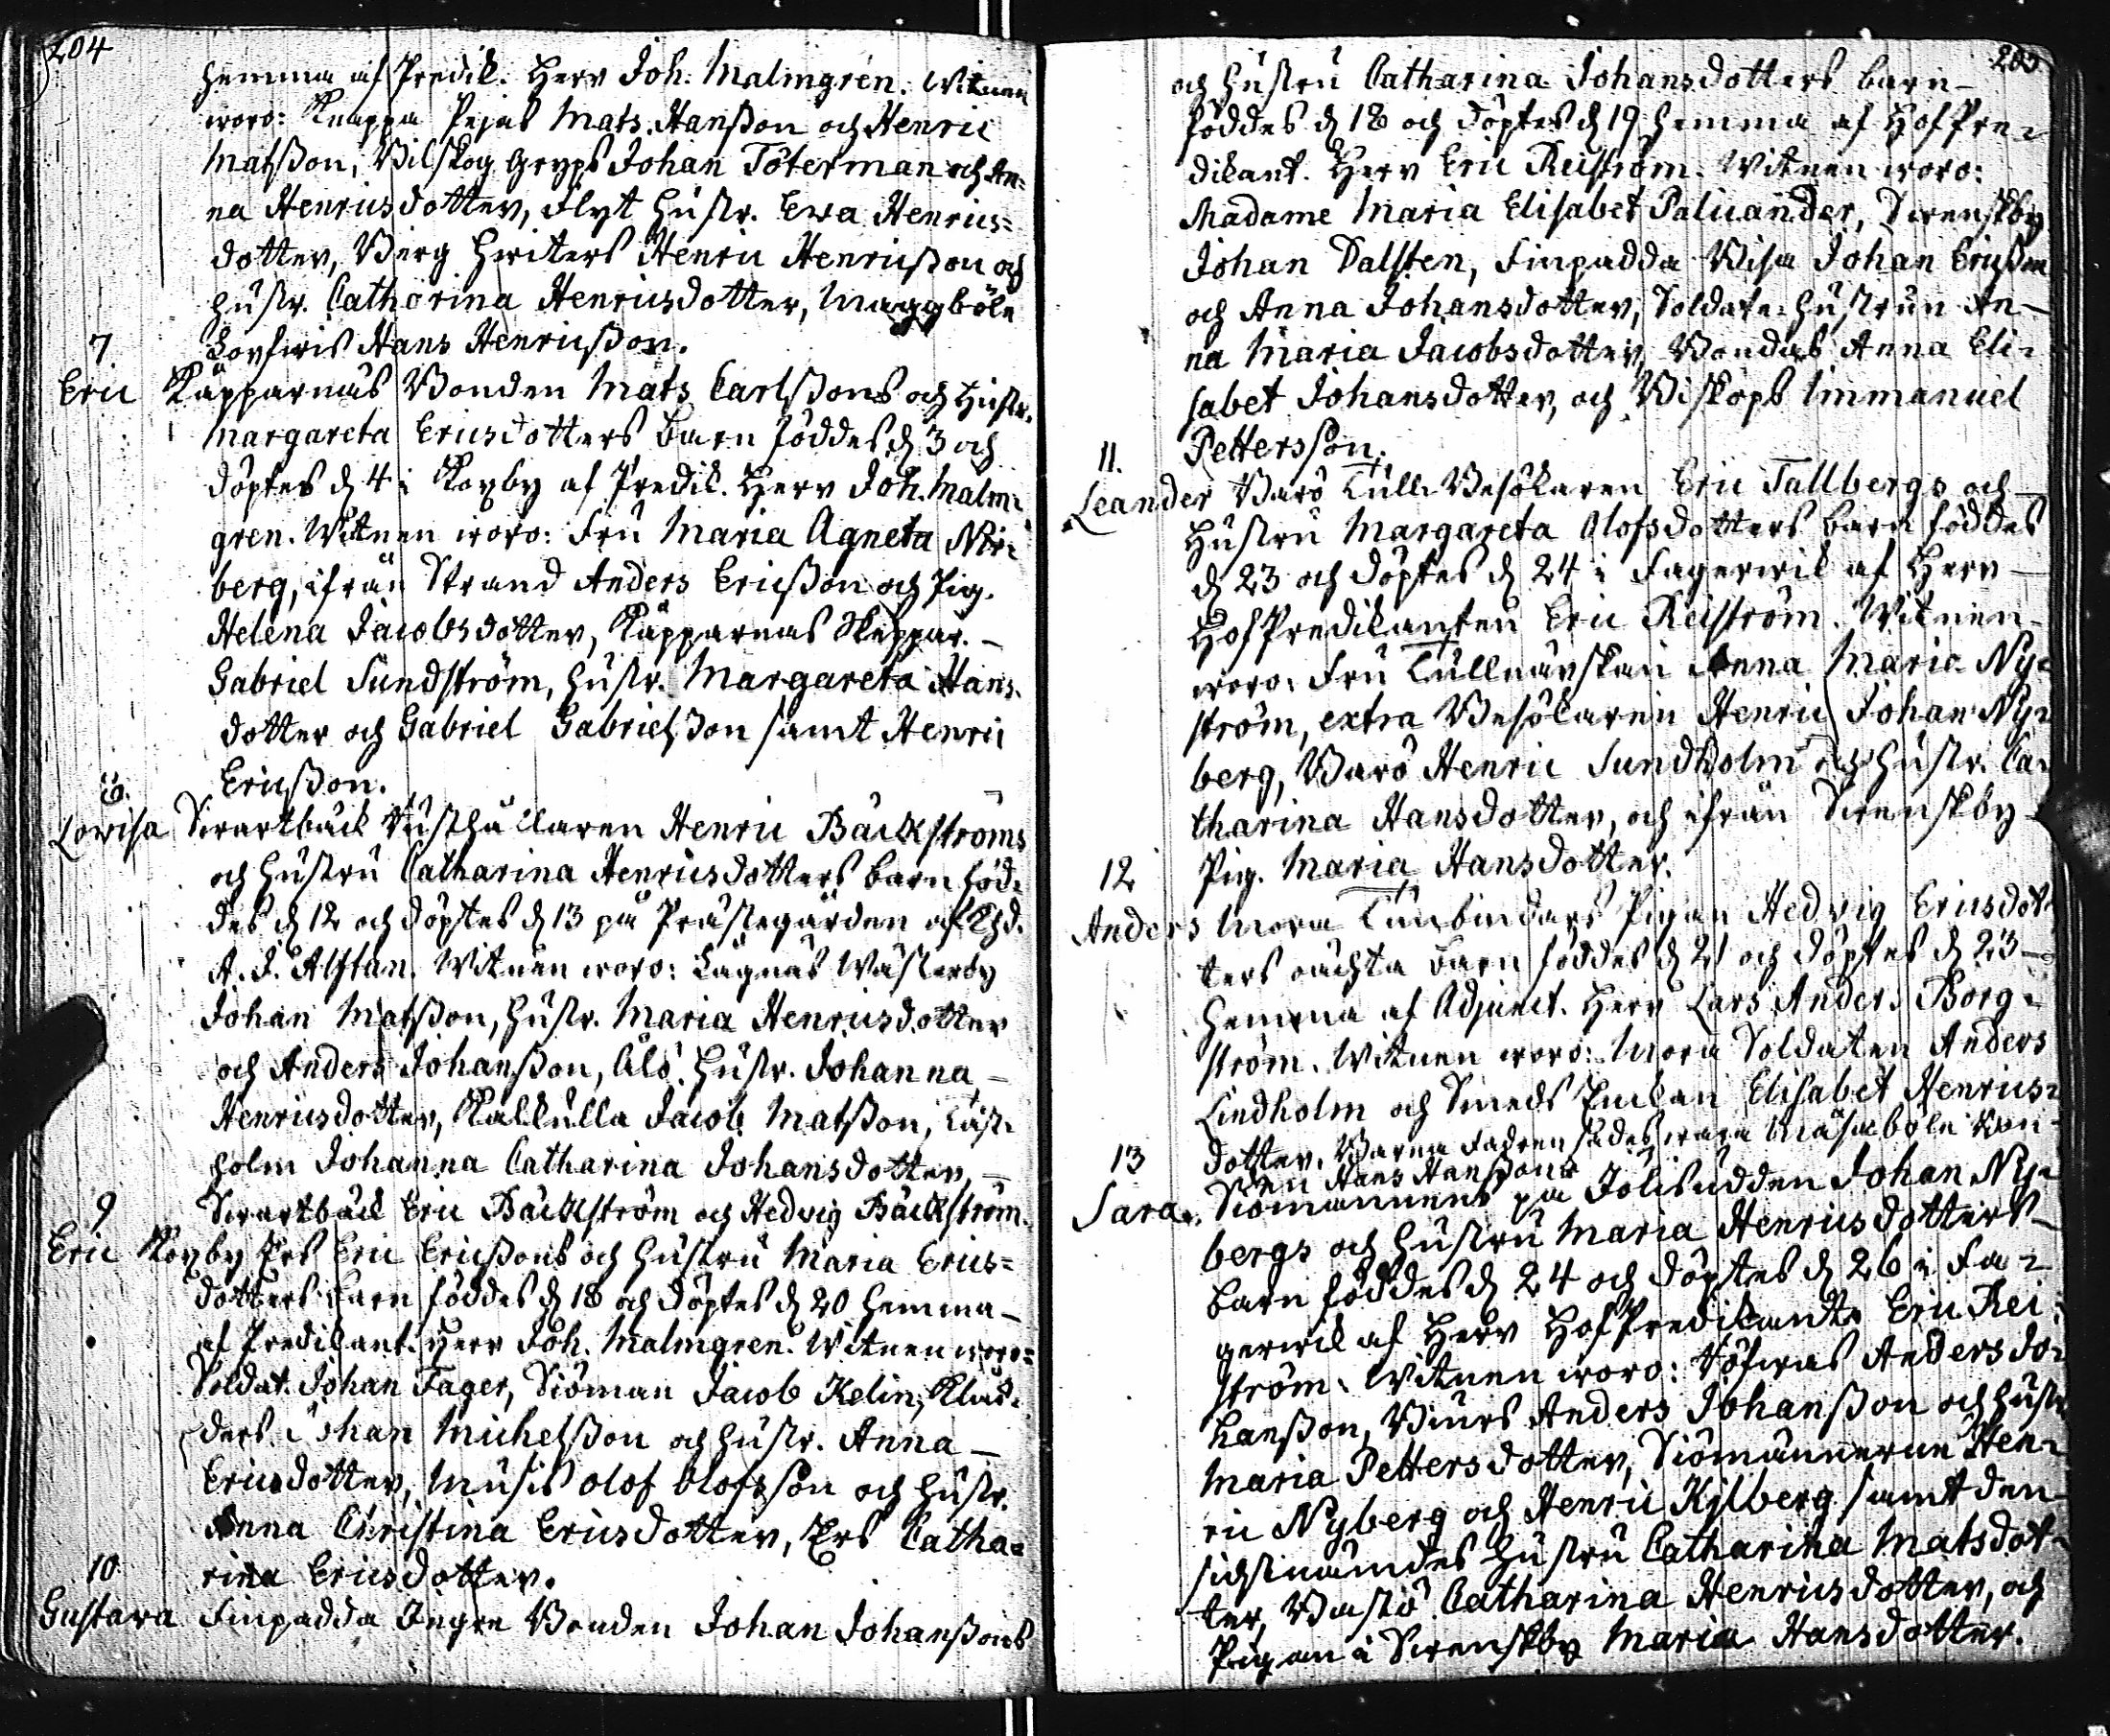 204
hemma af Predik. Herr Joh. Malmgrén. Witnen
woro: Knappa Pejas Mats Hanßon och Henric
Matßon, Bilskog Gryps Johan Töterman och An=
na Henricsdotter, Flyt hustr. Ewa Henrics=
dotter, Berg Hwiters Henric Henricßon och
hustr. Catharina Henricsdotter, Maggböle
Hans Henricßon.
7
Eric Käpparnäs Bonden Mats Carlßons och Hustr.
Margareta Ericsdotters Barn föddes d 3 och
döptes d 4 i Kopby af Predik. Herr Joh. Malm=
gren. Witnen woro: Fru Maria Agneta
berg, ifrån Strand Anders Ericßon och Pig.
Helena Jacobsdotter, Käpparnäs Skeppar.
Gabriel Sundström, hustr. Margareta Hans=
dotter och Gabriel Gabrielßon samt Henric
Ericßon.
8.
Lovisa Swartbäck Rusthållaren Henric Bäckströms
och hustru Catharina Henricsdotters barn föd=
des d 12 och döptes d 13 på Prästegården af
A. J. Alftan. Witnen woro: Lågnäs Wästerby
Johan Matßon, hustr. Maria Henricsdotter
och Anders Johanßon, hustr. Johanna
Henricsdotter, Kalkulla Jacob Matßon,
holm Johanna Catharina Johansdotter,
Swartbäck Eric Bäckström och Hedvig Bäckström.
9
Eric Kopby Ers Eric Ericßons och hustru Maria Erics=
dotters barn föddes d 18 och döptes d 20 hemma
af Predikant. Herr Joh. Malmgren. Witnen woro:
Soldat. Johan Fager, Siöman Jacob Kelin,
ders Johan Michelßon och hustr. Anna
Ericsdotter, Olof Olofsson och hustr.
Anna Christina Ericsdotter, Ers Catha=
rina Ericsdotter.
10
Gustava Finpadda Ingre Bonden Johan Johanßons
205
och hustru Catharina Johansdotters barn
föddes d 18 och döptes d 19 hemma af HofPre=
dikant. Herr Eric Reiström. Witnen woro:
Madame Maria Elisabet Palicander, Swenskby
Johan Dalsten, Finpadda Wisa Johan Ericßon
och Anna Johansdotter, Soldate hustrun An=
na Maria Jacobsdotter, Bondas Anna Eli=
sabet Johansdotter, och Biskops Immanuel
Pettersson.
11.
Leander Barö Tull Besökaren Eric Tallbergs och
Hustru Margareta Olofsdotters barn föddes
d 23 och döptes d 24 i Fagerwik af Herr
HofPredikanten Eric Reiström. Witnen
woro: Fru Anna Maria Ny=
ström, extra Besökaren Henric Johan Ny=
berg, Barö Henric Sundholm och hustr. Ca=
tharina Hansdotter, och ifrån Swenskby
Pig. Maria Hansdotter.
12
Anders Mora Tunbindars Pigan Hedvig Ericsdot=
ters oächta barn föddes d 21 och döptes d 23
hemma af Adjunct. Herr Lars Anders Borg=
ström. Witnen woro: Mora Soldaten Anders
Lindholm och Smeds Enkan Elisabet Henrics=
dotter. Barna Fadren sades wara Måsaböle
Hans Hanßon.
13
Sara. Siömannens på Jolisudden Johan Ny=
bergs och hustru Maria Henricsdotters
barn föddes d 24 och döptes d 26 i Fa=
gerwik af Herr HofPredikant. Eric Rei=
ström. Witnen woro: Anders Jo=
hanßon, Anders Johanßon och hustr.
Maria Pettersdotter, Siömännerne Hen=
ric Nyberg och Henric Kylberg samt den
sistnämdes hustru Catharina Matsdot=
ter, Catharina Henricsdotter, och
Pigan i Swenskby Maria Hansdotter.